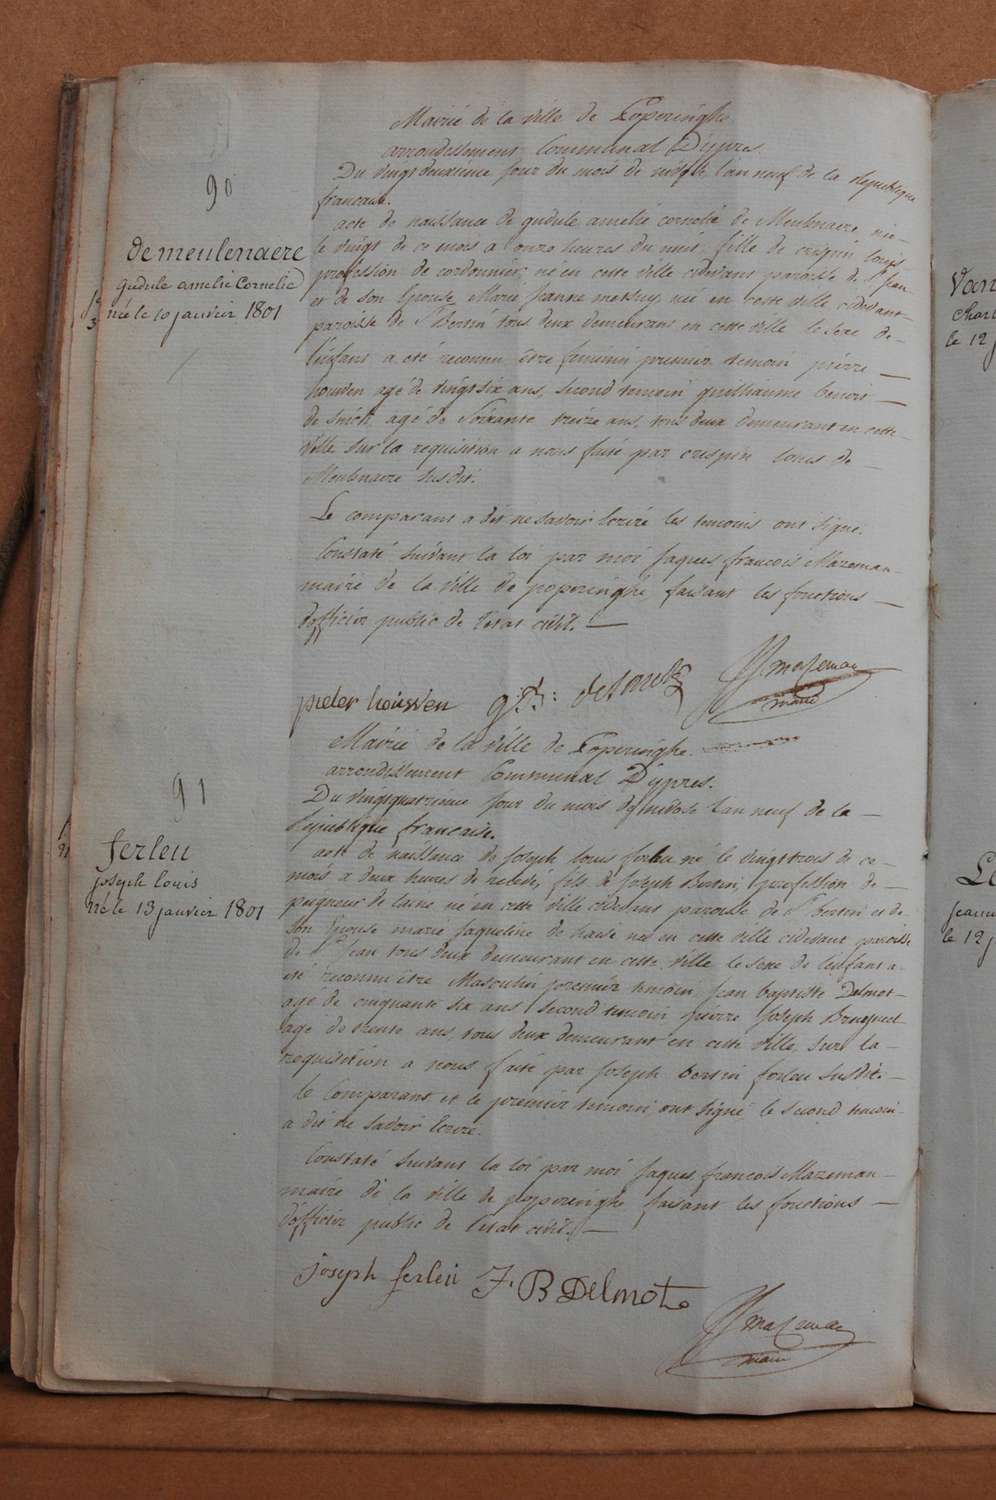 90
de meulenaere
gudule amelie Cornelie
né le 10 janvier 1801
Mairie de la ville de Poperinghe
arrondissement Communal D'ypres
Du vingt deuxieme jour du mois de nivose l'an neuf de la Republique
francaise.
acte de naissance de gudule amelie cornelie de Meulenaere, née
le vingt de ce mois a onze heures du nuit, fille de crispin louis
profession de cordonnier, né en cette ville cidevant paroisse de St jean
et de son Epouse Marie Jeanne née en cette ville cidevant
paroisse de St Bertin tous deux demeurans en cette ville le sexe de
l'enfant a été reconnu être feminin premier temoin pierre
houven agé de vingt six ans, second temoin guilhaume benoit
de smidt, agé de soixante treize ans, tous deux demeurant en cette
ville sur la requisition a nous faite par crispin louis de
Meulenaere susdit.
Le comparant a dit ne savoir ecrire les temoins ont signé.
Constaté suivant la loi par moi jaques francois Mazeman
maire de la ville de poperinghe, faisant les fonctions
d'officier public de l'etat civil.
pieter houven g: b: desmidt JJ Mazeman
maire
91
ferleu
joseph louis
né le 13 janvier 1801
Mairie de la ville de Poperinghe
arrondissement Communal D'ypres.
Du vingtquatrieme jour du mois de nivose l'an neuf de la
Republique francaise.
acte de naissance de Joseph louis ferleu né le vingt trois de ce
mois a deux heures de relevée, fils de Joseph Bertin, profession de
peigneur de laine né en cette ville cidevant paroisse de St bertin et de
son Epouse marie jaqueline de née en cette ville cidevant paroisse
de St jean tous deux demeurant en cette ville le sexe de l'enfant a
eté reconnu être Masculin premier temoin jean baptiste Delmot
agé de cinquante six ans second temoin pierre joseph
agé de trente ans, tous deux demeurant en cette ville, sur la
requisition a nous faite par joseph bertin ferleu susdit.
le Comparant et le premier temoin ont signé le second temoin
a dit ne savoir ecrire.
Constaté suivant la loi par moi jaques francois Mazeman
maire de la ville de poperinghe faisant les fonctions
d'officier public de l'etat civil.
joseph ferleu J. B Delmot JJ Mazeman
maire
Van
Charl
le 12 j
Le
jeann
le 12 j